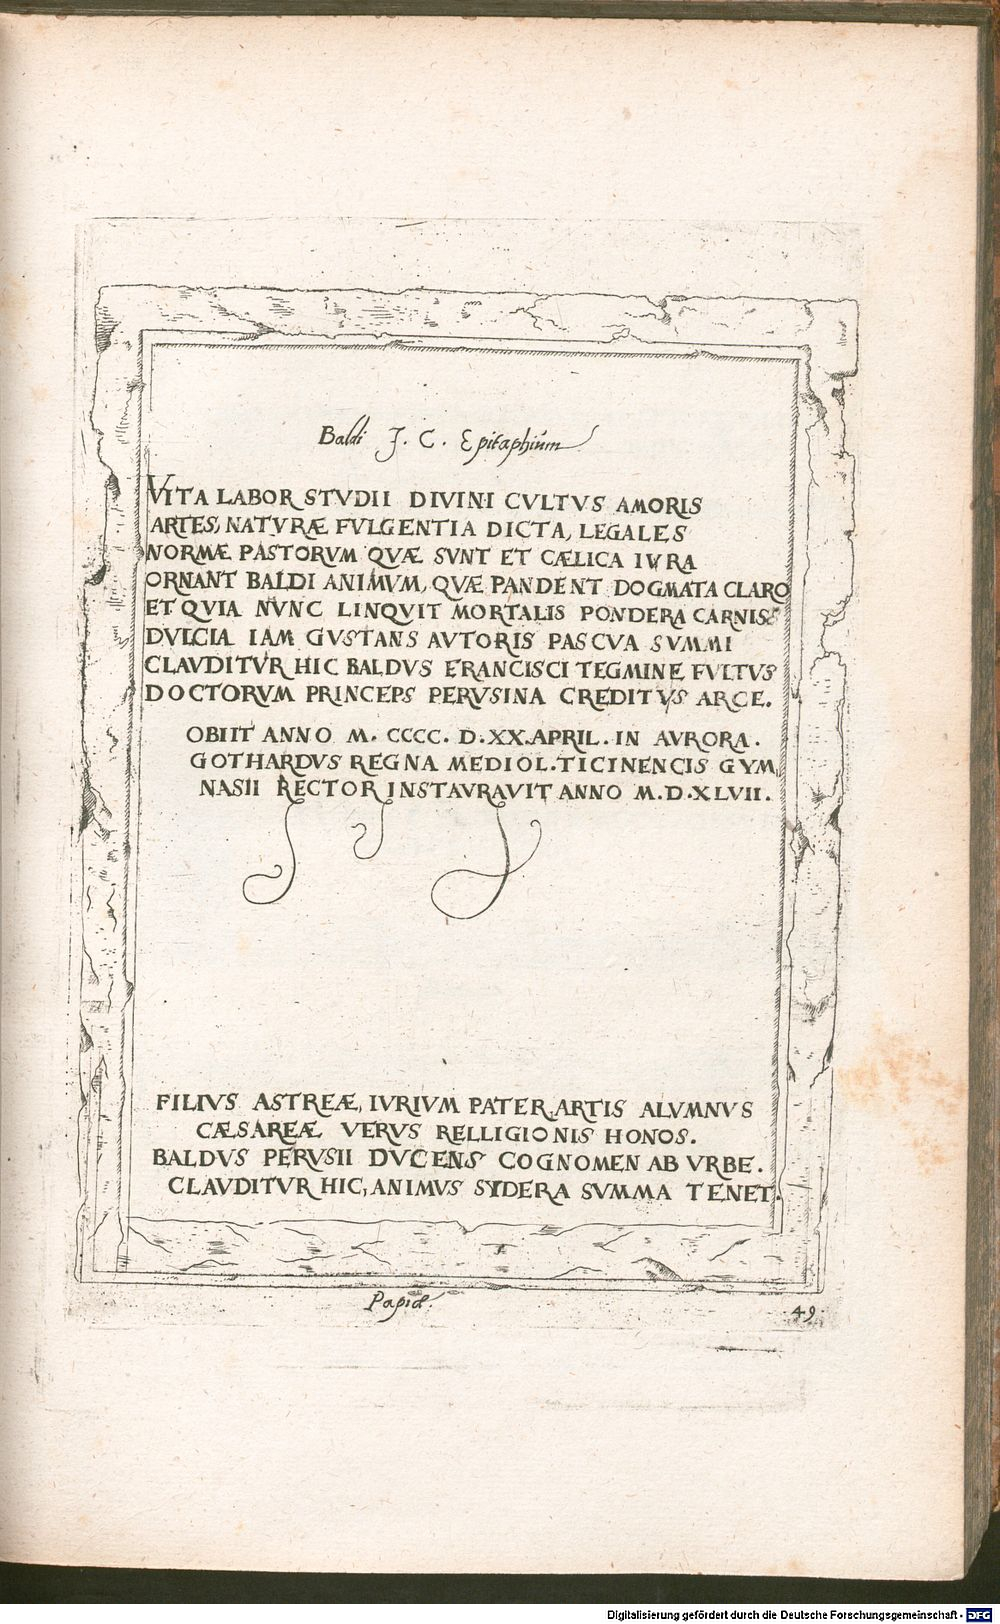 Baldi J. C. Epitaphium
VITA LABOR STVDII DIVINI CVLTVS AMORIS
ARTES, NATVRÆ FVLGENTIA DICTA, LEGALES
NORMÆ PASTORVM QVÆ SVNT ET CÆLICA IVRA
ORNANT BALDI ANIMVM, QVÆ PANDENT DOGMATA CLARO
ET QVIA NVNC LINQVIT MORTALIS PONDERA CARNIS
DVLCIA IAM GVSTANS AVTORIS PASCVA SVMMI
CLAVDITVR HIC BALDVS FRANCISCI TEGMINE FVLTVS
DOCTORVM PRINCEPS PERVSINA CREDITVS ARCE.
OBIIT ANNO M. CCCC. D. XX. APRIL. IN AVRORA.
GOTHARDVS REGNA MEDIOL. TICINENCIS GYM
NASII RECTOR INSTAVRAVIT ANNO M.D.XLVII.
FILIVS ASTREÆ, IVRIVM PATER, ARTIS ALVMNVS
CÆSAREÆ VERVS RELLIGIONIS HONOS.
BALDVS PERVSII DVCENS COGNOMEN AB VRBE.
CLAVDITVR HIC, ANIMVS SYDERA SVMMA TENET.
Papiæ.
49
Digitalisierung gefördert durch die Deutsche Forschungsgemeinschaft - DFG